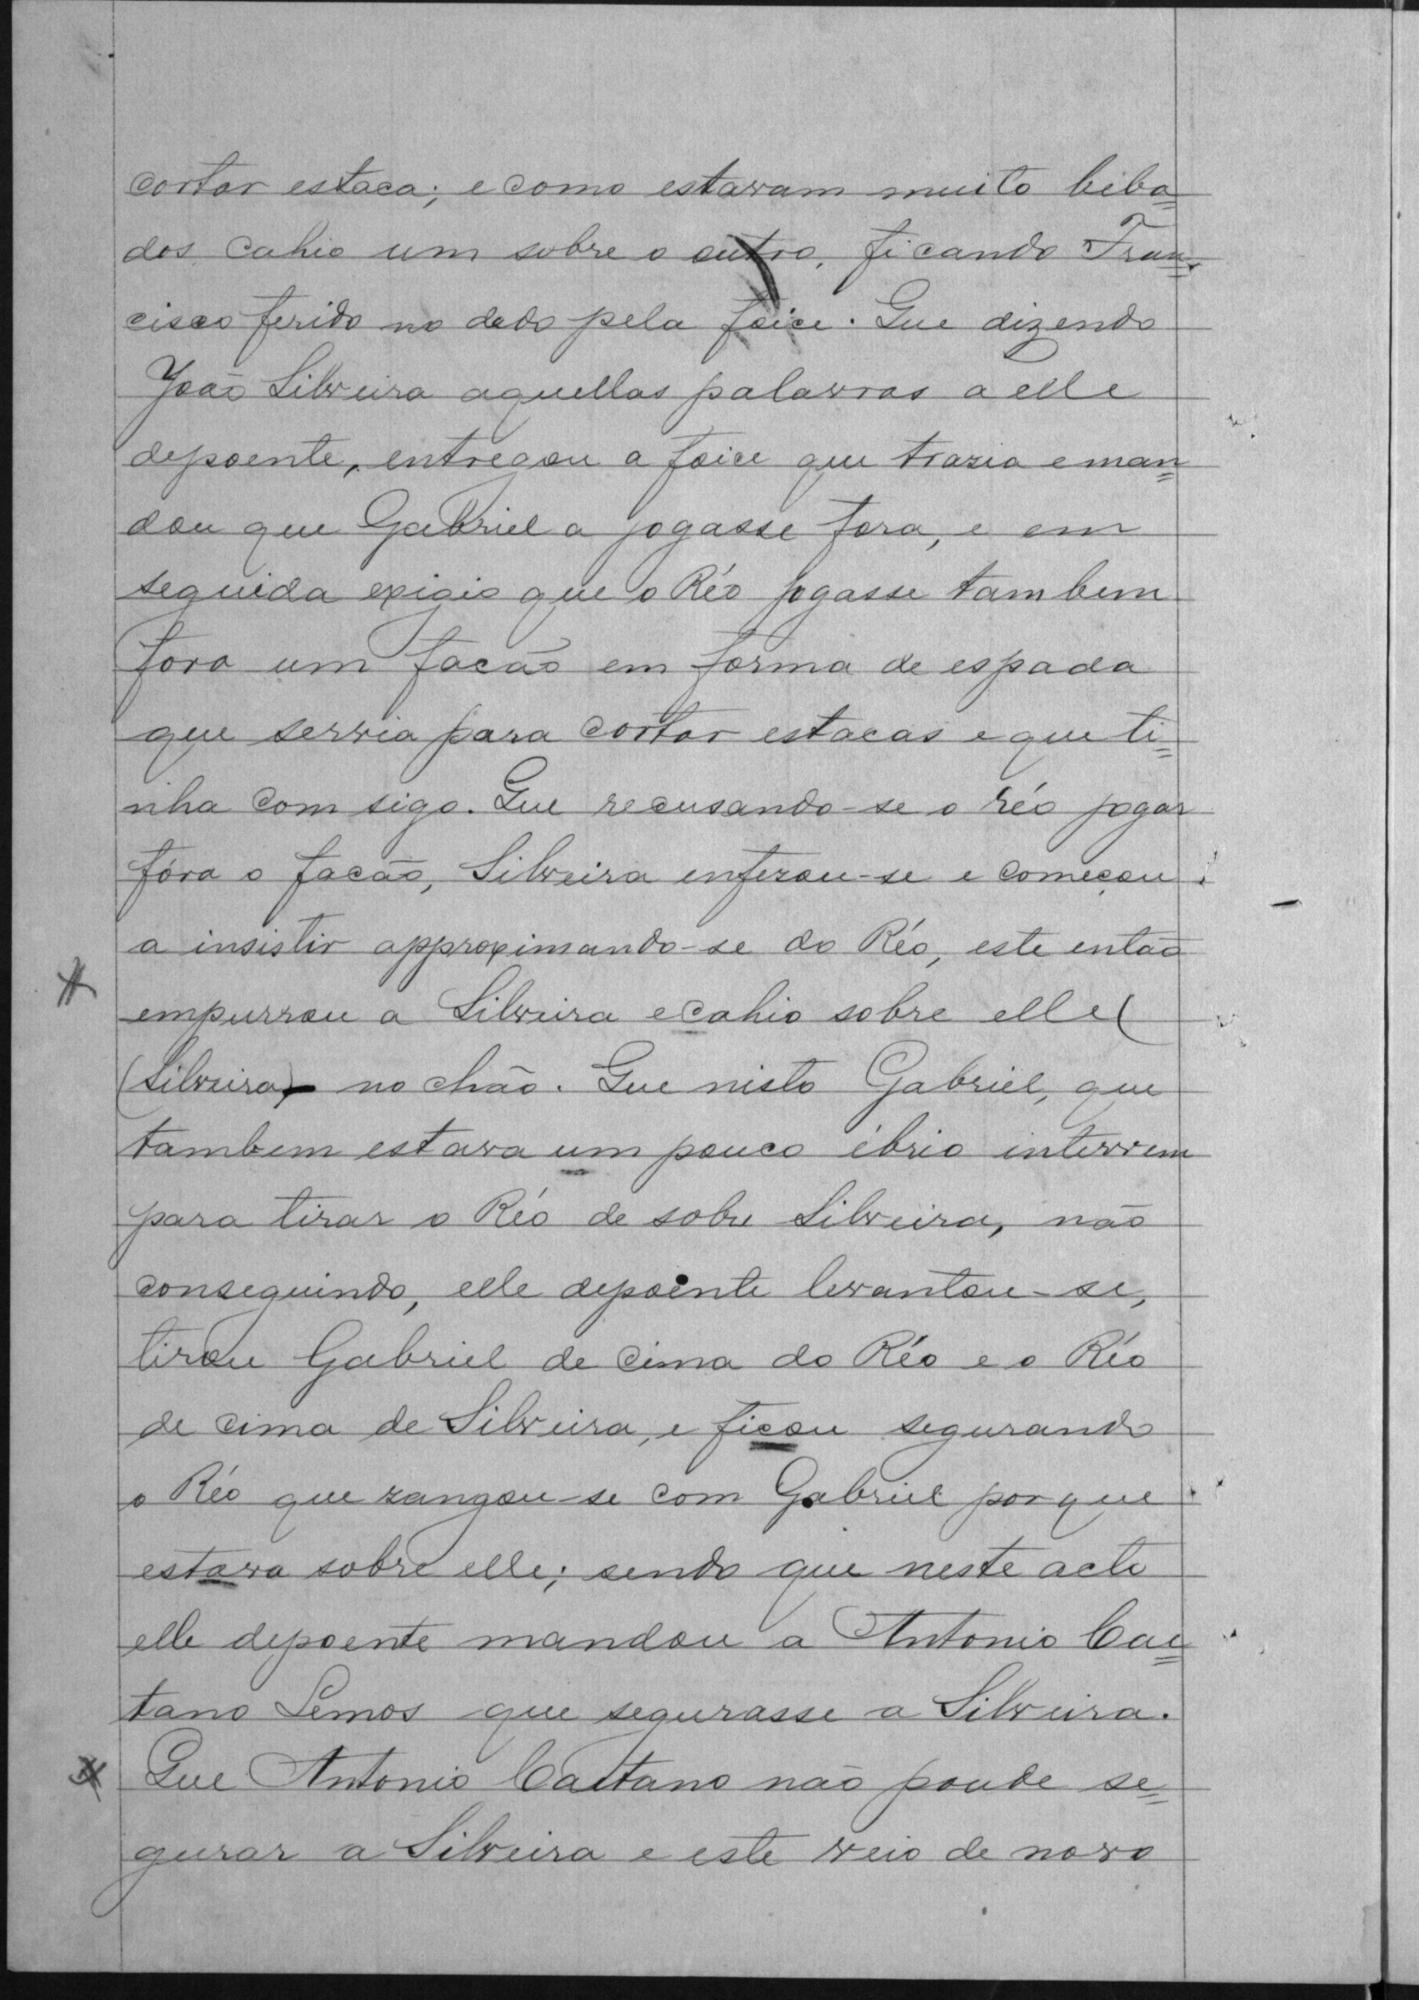 cortar estaca; e como estavam muito beba=
dos cahio um sobre o outro, ficando Fran=
cisco ferido no dedo pela foice. Que dizendo
João Silveira aquellas palavras a elle
depoente, entregou a foice que trazia e man=
dou que Gabriel a jogasse fora, e em
seguida exigio que o Réo jogasse tambem
fora um facão em forma de espada
que servia para cortar estacas e que ti=
nha com sigo. Que recusando-se o réo jogar
fóra o facão, Silveira enfezou-se e começou
a insistir approximando-se do Réo, este então
empurrou a Silveira e cahio sobre elle (
(Silveira) no chão. Que nisto Gabriel, que
tambem estava um pouco ébrio intervem
para tirar o Réo de sobre Silveira, não
conseguindo, elle depoente levantou-se,
tirou Gabriel de cima do Réo e o Réo
de cima de Silveira, e ficou segurando
o Réo que zangou-se com Gabriel porque
estava sobre elle; sendo que neste acto
elle depoente mandou a Antonio Cae=
tano Lemos que segurasse a Silveira.
Que Antonio Caetano não poude se=
gurar a Silveira e este veio de novo